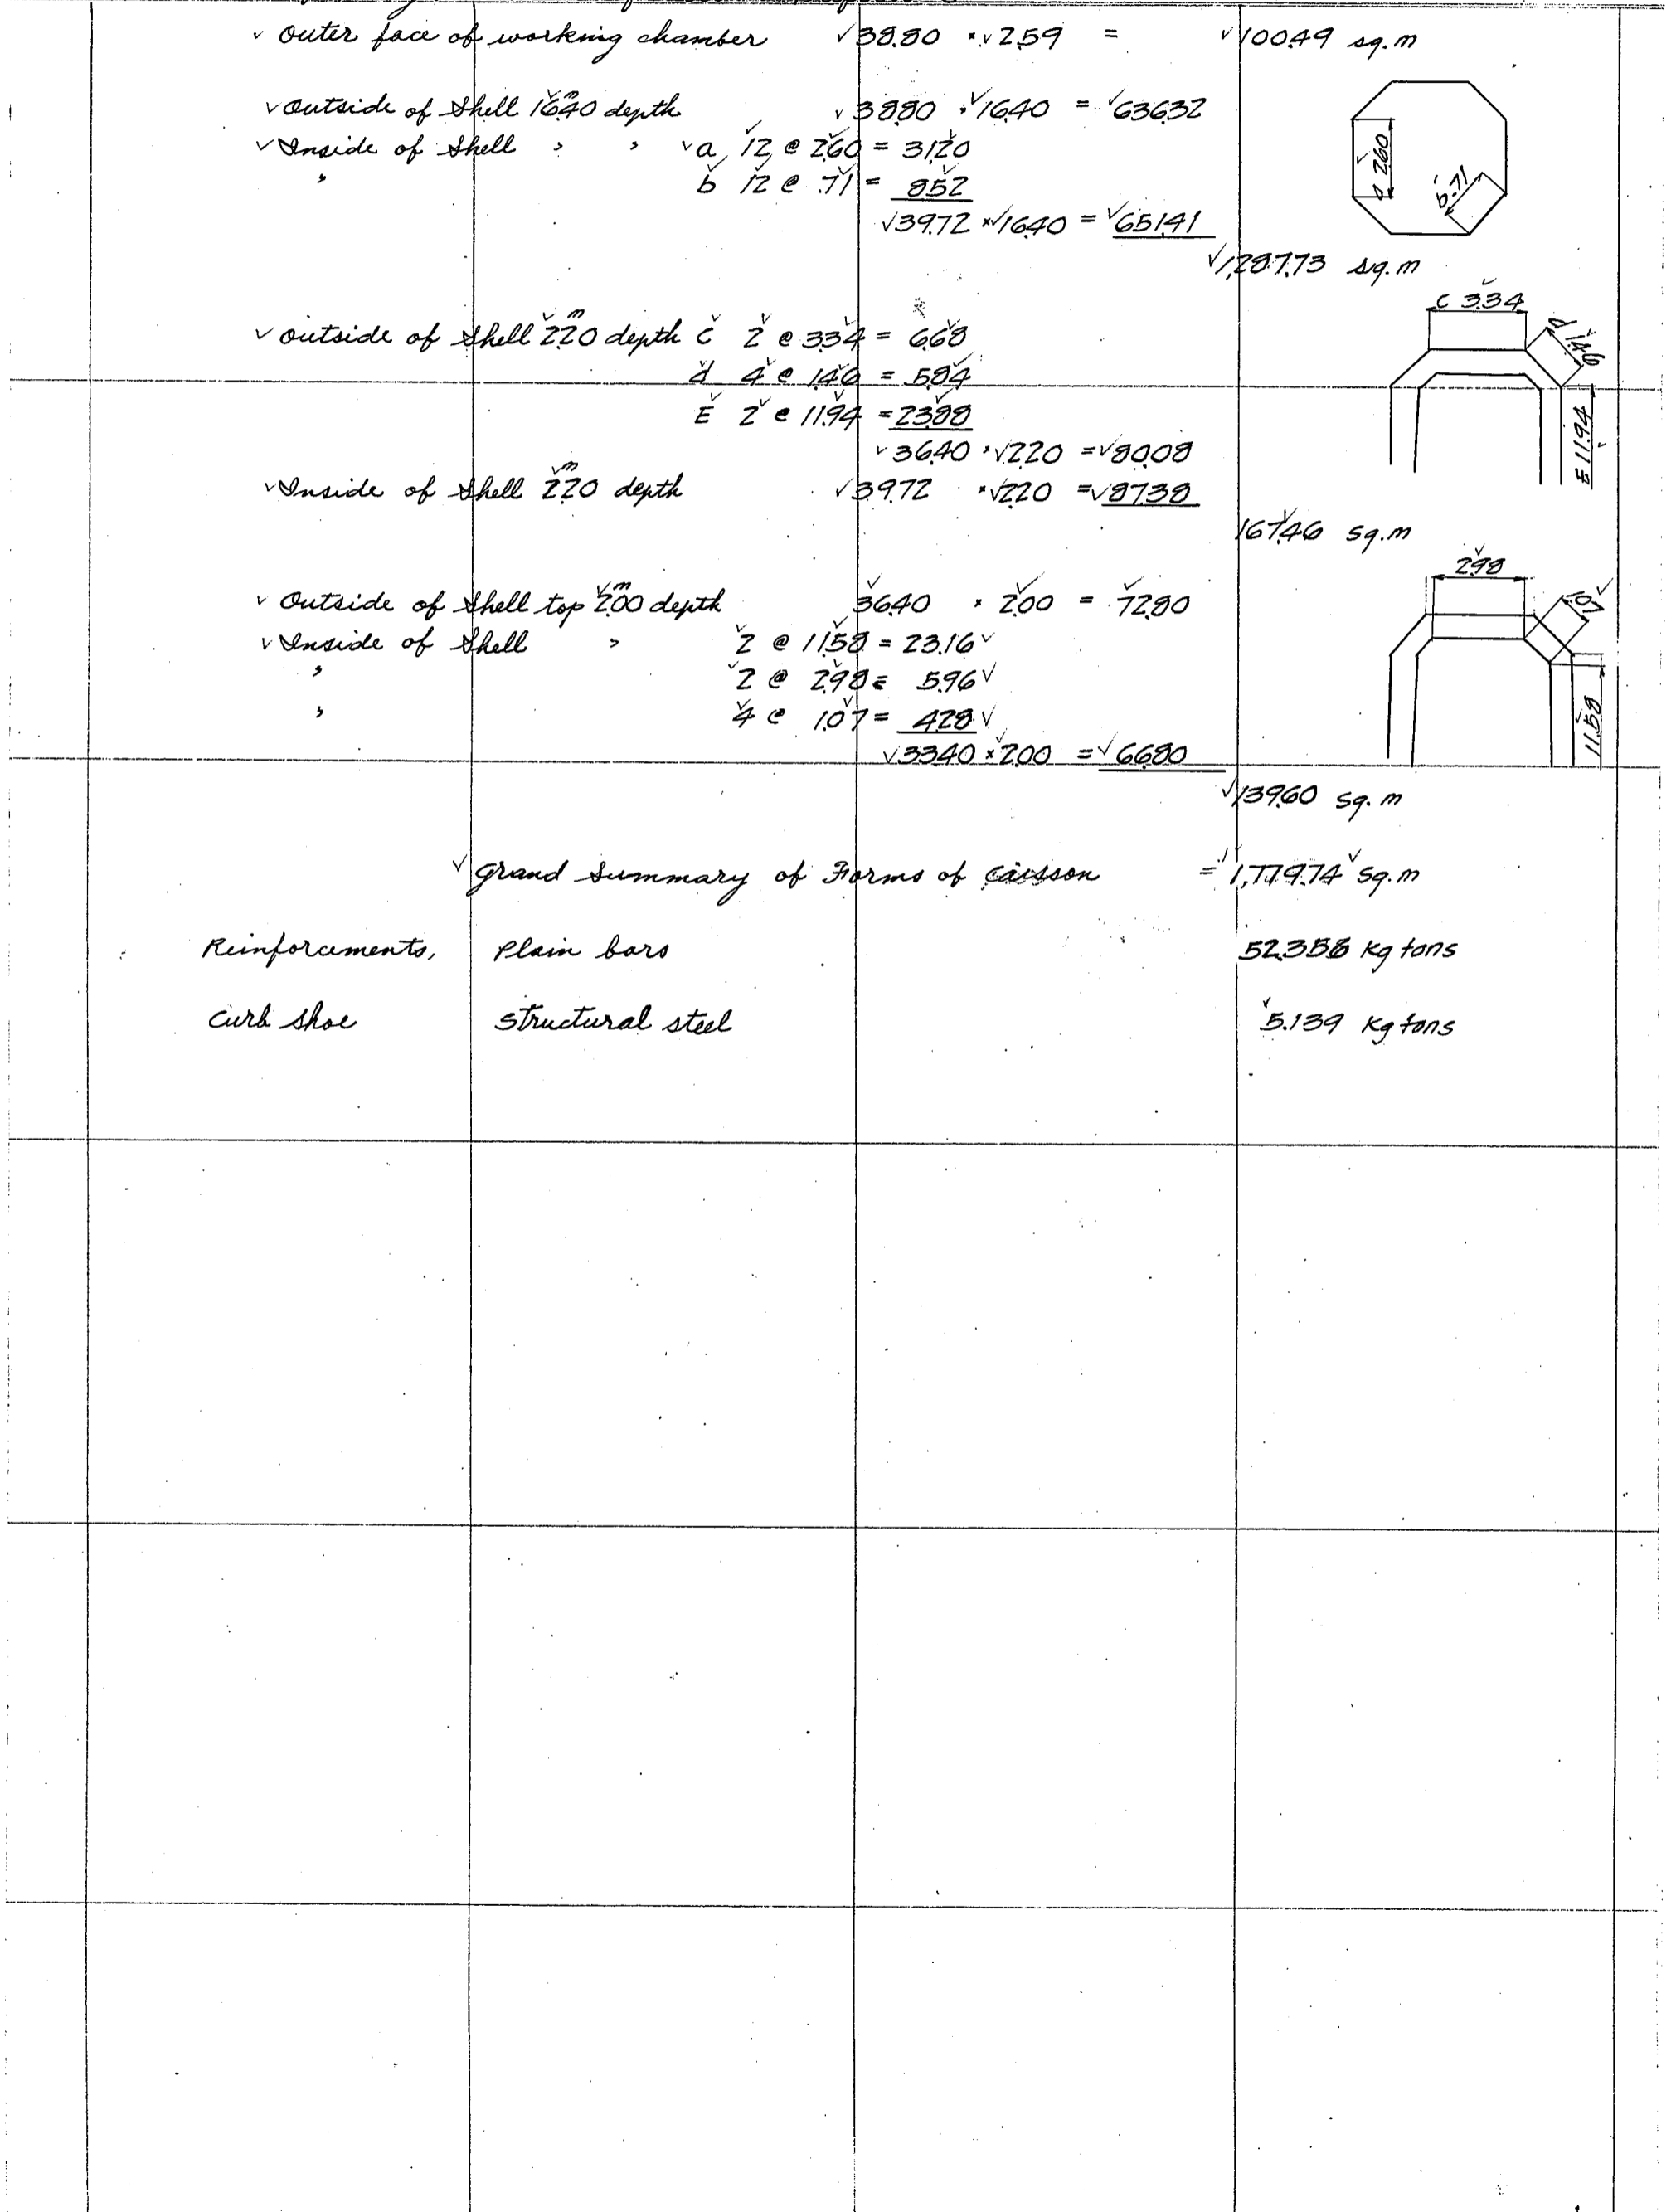 ✓ Outer face of working chamber ✓38.80 × ✓2.59 = ✓100.49 sq.m
✓ Outside of Shell 16.40 m depth ✓38.80 × ✓16.40 = ✓636.32
✓ Inside of Shell " " ✓a, 12 @ 2.60 = 31.20
" b 12 @ .71 = 8.52
✓39.72 × ✓16.40 = ✓651.41
✓1,287.73 sq.m
a 2.60
b .71
✓ Outside of Shell 2.20 m depth C 2 @ 3.34 = 6.68
d 4 @ 1.46 = 5.84
E 2 @ 11.94 = 23.88
✓36.40 × ✓2.20 = ✓80.08
✓ Inside of Shell 2.20 m depth ✓39.72 × ✓2.20 = ✓87.38
167.46 sq.m
C 3.34
d 1.46
E 11.94
✓ Outside of Shell top 2.00 m depth 36.40 × 2.00 = 72.80
✓ Inside of Shell " 2 @ 11.58 = 23.16 ✓
" 2 @ 2.98 = 5.96 ✓
" 4 @ 1.07 = 4.28 ✓
✓33.40 × 2.00 = ✓66.80
✓139.60 sq.m
2.98
1.07 ✓
11.58
✓ Grand Summary of Forms of Caisson = 1,779.74 sq.m
Reinforcements, Plain bars 52.358 Kg tons
Curb Shoe Structural steel 5.139 Kg tons